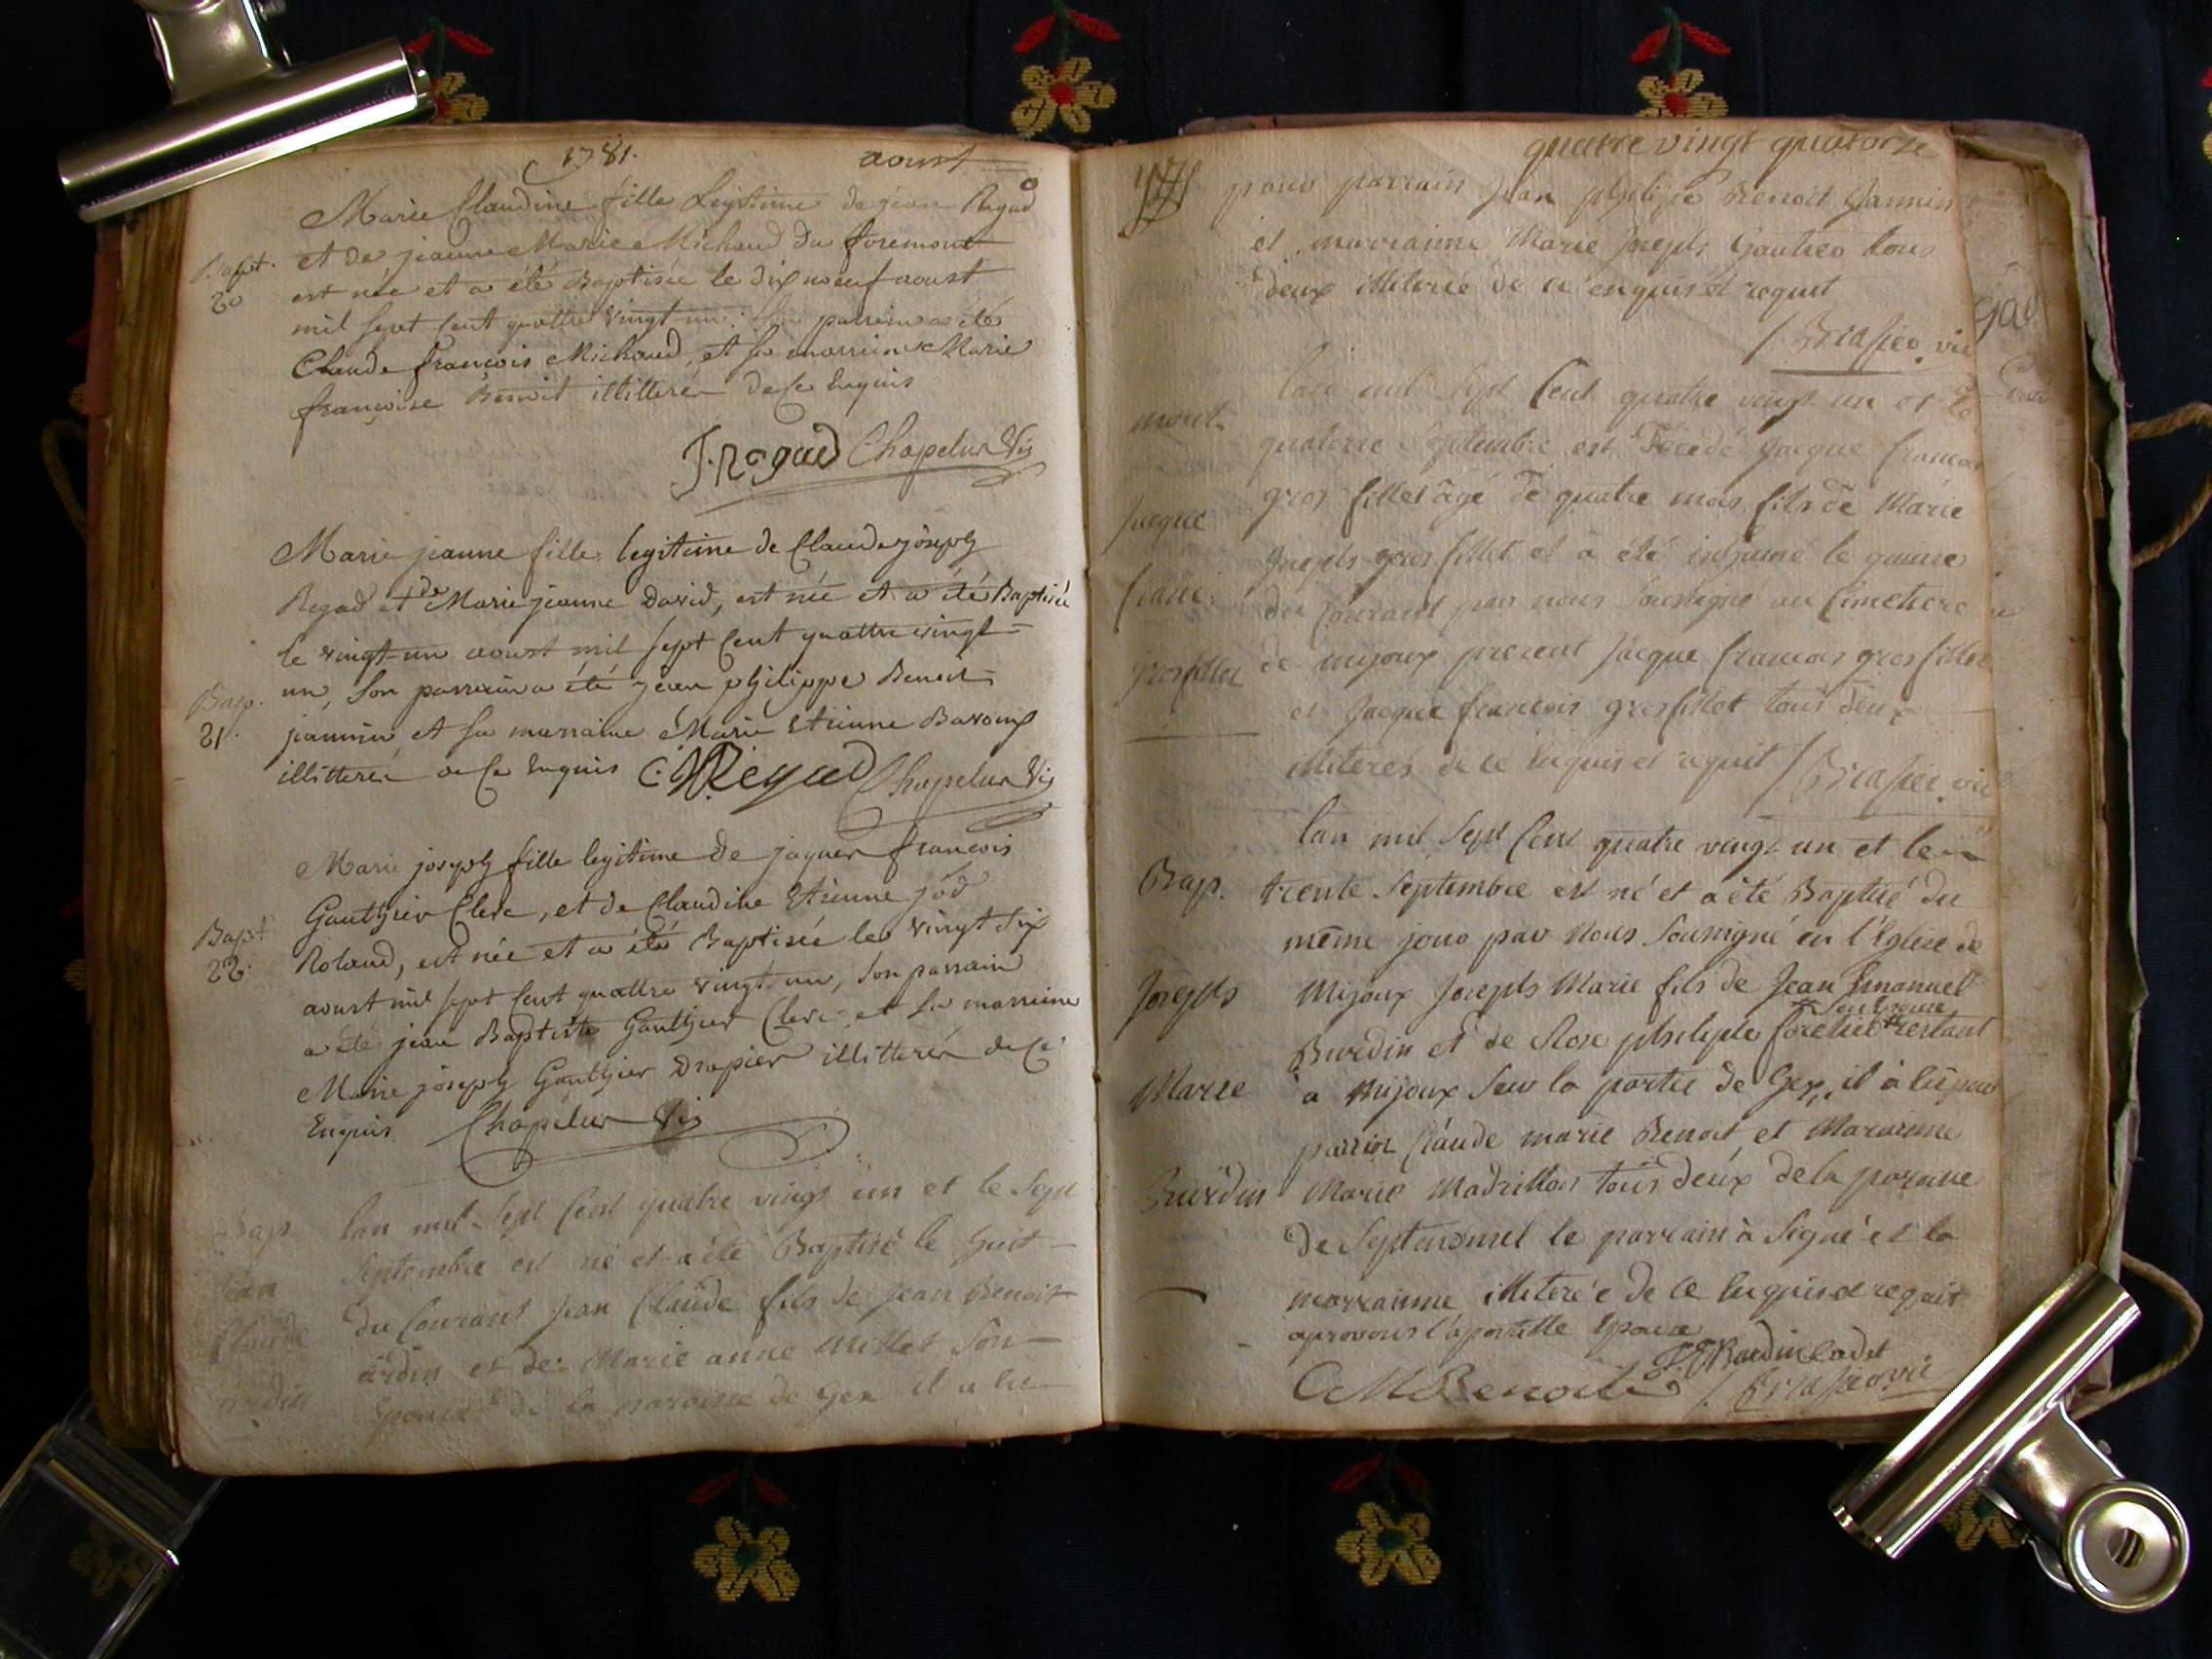 1781. aoust
Marie Claudine fille Legitime de jean Regad
et de jeanne Marie Michaud du foremont
Bapt. est née et a été Baptisée le dix neuf aoust
20 mil sept cent quattre vingt un: Son parrein a été
Claude françois Michaud, et sa marreine Marie
françoise Benoit illitterés de ce Enquis
J. Regad Chapelus Vic
Marie jeanne fille legitime de Claude joseph
Regad et de Marie jeanne David, est née et a été Baptisée
le vingt-un aoust mil sept cent quattre vingt=
Bap. un, son parrein a été jean philippe Benoit
21. jannin et sa marraine Marie Etienne
illitterés de ce Enquis C. J Regad Chapelus Vic
Marie joseph fille legitime de jaques françois
Gauthier Clerc, et de Claudine Etienne jod
Bapt Roland, est née et a été Baptisée le vingt six
22. aoust mil sept cent quattre vingt-un, son parrain
a été jean Baptiste Gauthier Clerc, et sa marreine
Marie joseph Gauthier Drapier illitterés de ce
Enquis Chapelus Vic
Bap lan mil sept Cent quatre vingt un et le sept
Septembre est né et a été Baptisé le huit
Jean du Courant Jean Claude fils de Jean Benoit
Claude et de Marie anne Millet Son
Epouse de la paroisse de Gex il a lu
quatre vingt quatorze
pour parrain Jean philipe Benoit Jannin
et marrainne Marie Joseph Gautier tous
deux illiteré de ce enquis et requit
Brasier vic
lan mil sept Cent quatre vingt un et le
mort. quatorze septembre est Décédé Jacque francois
Jacque gros fillet âgé de quatre mois fils de Marie
Joseph gros fillet et a été inhumé le quinze
franc: du Courant par nous Soussigné au Cimetiere
grosfillet de mijoux present Jacque francois grosfillet
et Jacque francois grosfillet tous deux
illiteres de ce enquis et requit Brasier vic
lan mil Sept Cent quatre vingt un et le
Bap. trente Septembre est né et a été Baptisé du
même jour par nous Soussigné en l'Eglise de
Joseph Mijoux Joseph Marie fils de Jean Emanuel
Son Epouse
Burdin et de Rose philiple forestier restant
Marie a Mijoux Sur la partie de Gex, il a lu pour
parrin Claude marie Benoit et Marainne
Buirdin Marie Madrillon tous deux de la paroisse
de Septmoncel le parrain à Signé et la
marrainne illiterée de ce enquis et requit
aprovons l'apostille Epouse
J. E Burdin Cadet
C M Benoit Brasier vic